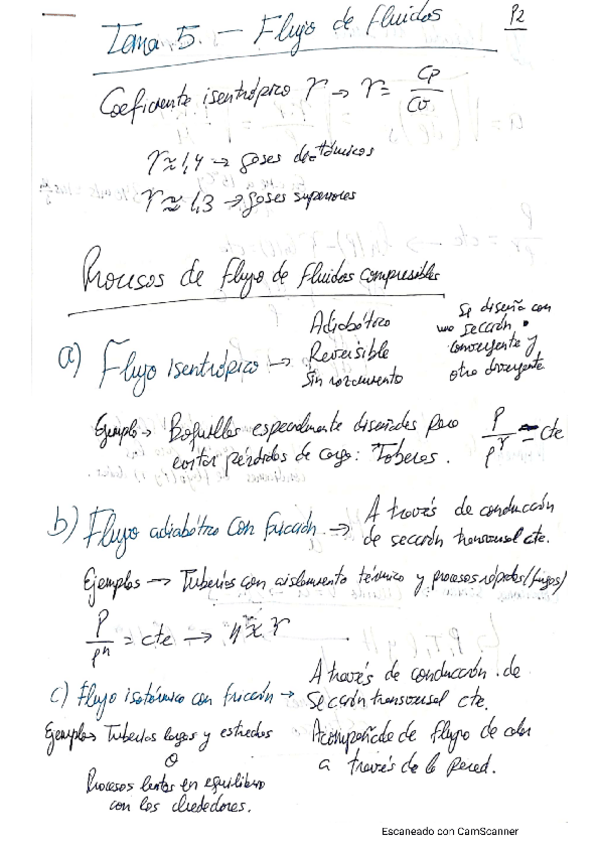 P2
Tema 5. - Flujo de Fluidos
Coeficiente isentrópico γ → γ = Cp/Cv
γ ≈ 1,4 → gases diatómicos
γ ≈ 1,3 → gases superiores
Procesos de flujo de fluidos compresibles
a) Flujo isentrópico → Adiabático
Reversible
Sin rozamiento
Se diseña con
una sección
convergente y
otra divergente
Ejemplo → Boquillas especialmente diseñadas para
evitar pérdidas de carga: Toberas.
P/ρ^γ = cte
b) Flujo adiabático con fricción. → A través de conducción
de sección transversal cte.
Ejemplos → Tuberías con aislamiento térmico y procesos rápidos (fugas)
P/ρ^n = cte → n ≈ γ
c) Flujo isotérmico con fricción → A través de conducción de
sección transversal cte.
Acompañado de flujo de calor
a través de la pared.
Ejemplos Tuberías largas y estrechas
o
Procesos lentos en equilibrio
con los alrededores.
Escaneado con CamScanner